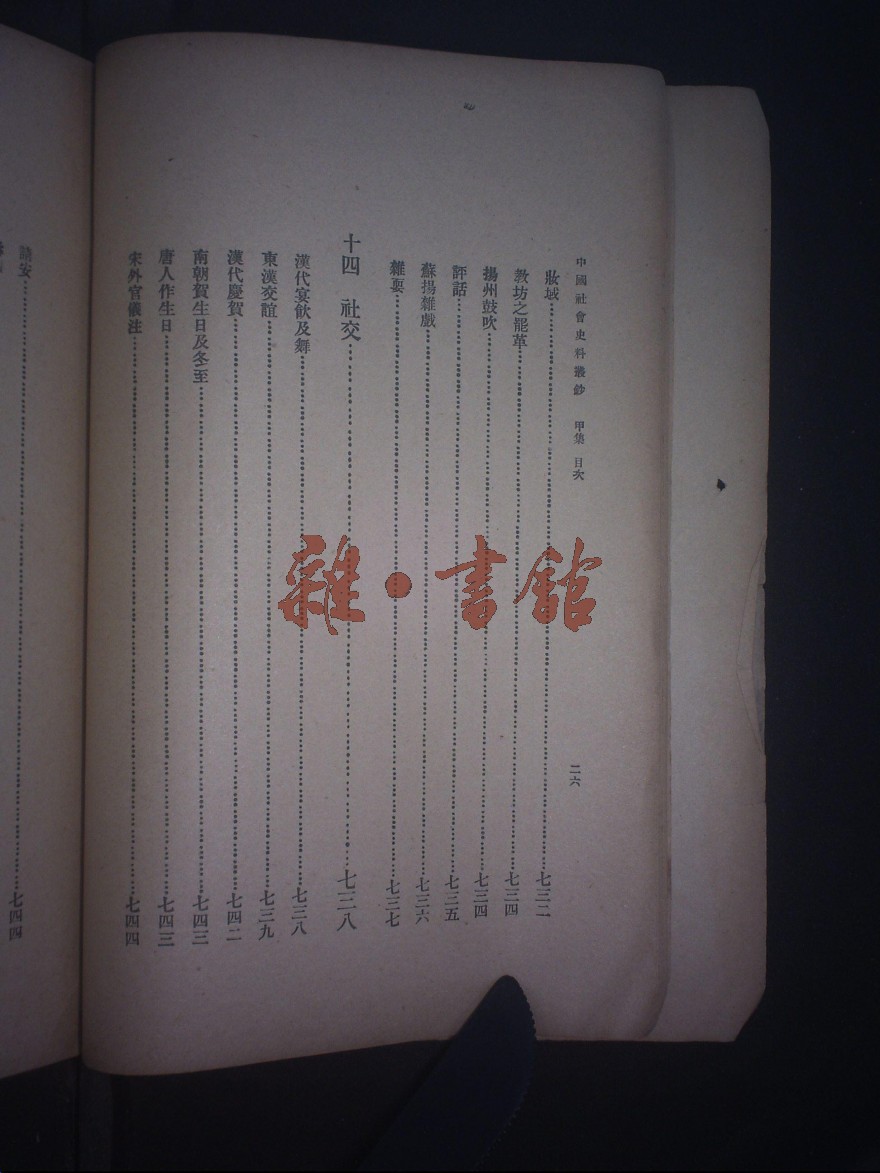 中國社會史料叢鈔 甲集 目次 二六
妝域 七三二
教坊之罷革 七三四
揚州鼓吹 七三四
評話 七三五
蘇揚雜戲 七三六
雜耍 七三七
十四 社交 七三八
漢代宴飲及舞 七三八
東漢交誼 七三九
漢代慶賀 七四二
南朝賀生日及冬至 七四三
唐人作生日 七四三
宋外官儀注 七四四
請安 七四四
雜·書館